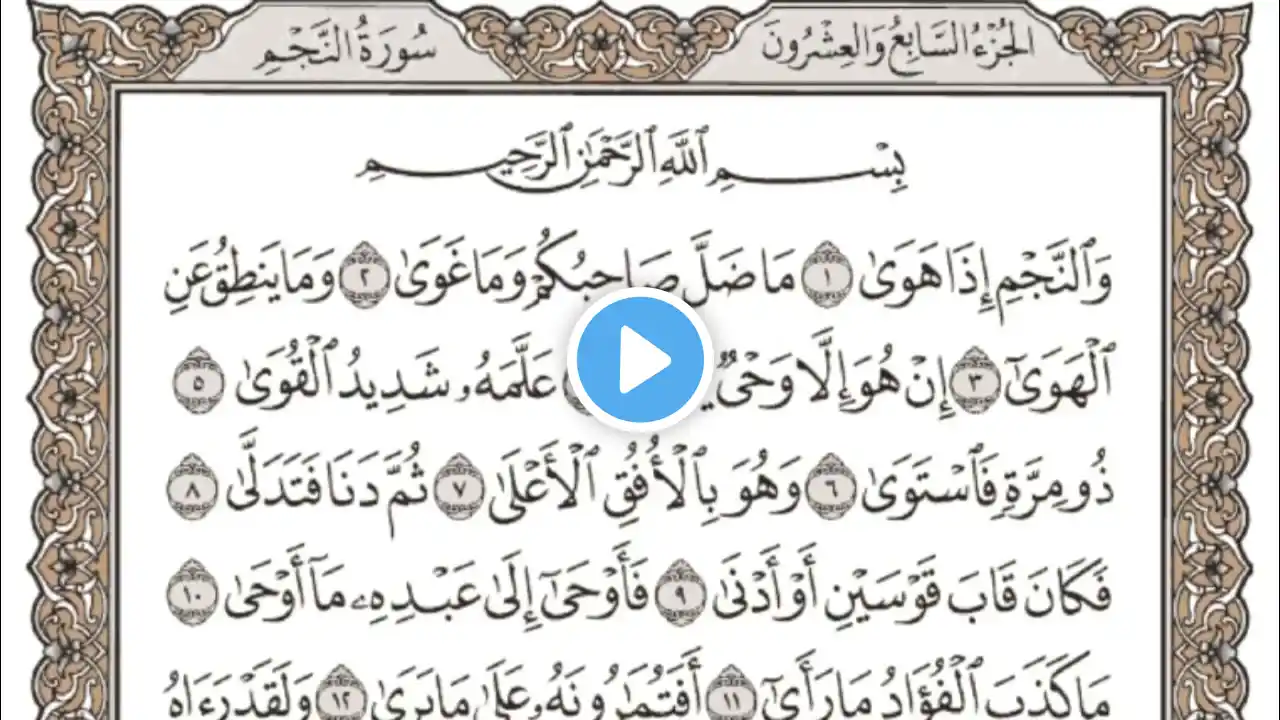 الجُزْءُ السَّابِعُ وَالعِشْرُونَ
سُورَةُ النَّجْمِ
بِسْمِ ٱللَّهِ ٱلرَّحْمَٰنِ ٱلرَّحِيمِ
وَٱلنَّجْمِ إِذَا هَوَىٰ ١ مَا ضَلَّ صَاحِبُكُمْ وَمَا غَوَىٰ ٢ وَمَا يَنطِقُ عَنِ
ٱلْهَوَىٰٓ ٣ إِنْ هُوَ إِلَّا وَحْىٌ عَلَّمَهُۥ شَدِيدُ ٱلْقُوَىٰ ٥
ذُو مِرَّةٍ فَٱسْتَوَىٰ ٦ وَهُوَ بِٱلْأُفُقِ ٱلْأَعْلَىٰ ٧ ثُمَّ دَنَا فَتَدَلَّىٰ ٨
فَكَانَ قَابَ قَوْسَيْنِ أَوْ أَدْنَىٰ ٩ فَأَوْحَىٰٓ إِلَىٰ عَبْدِهِۦ مَآ أَوْحَىٰ ١٠
مَا كَذَبَ ٱلْفُؤَادُ مَا رَأَىٰٓ ١١ أَفَتُمَٰرُونَهُۥ عَلَىٰ مَا يَرَىٰ ١٢ وَلَقَدْ رَءَاهُ